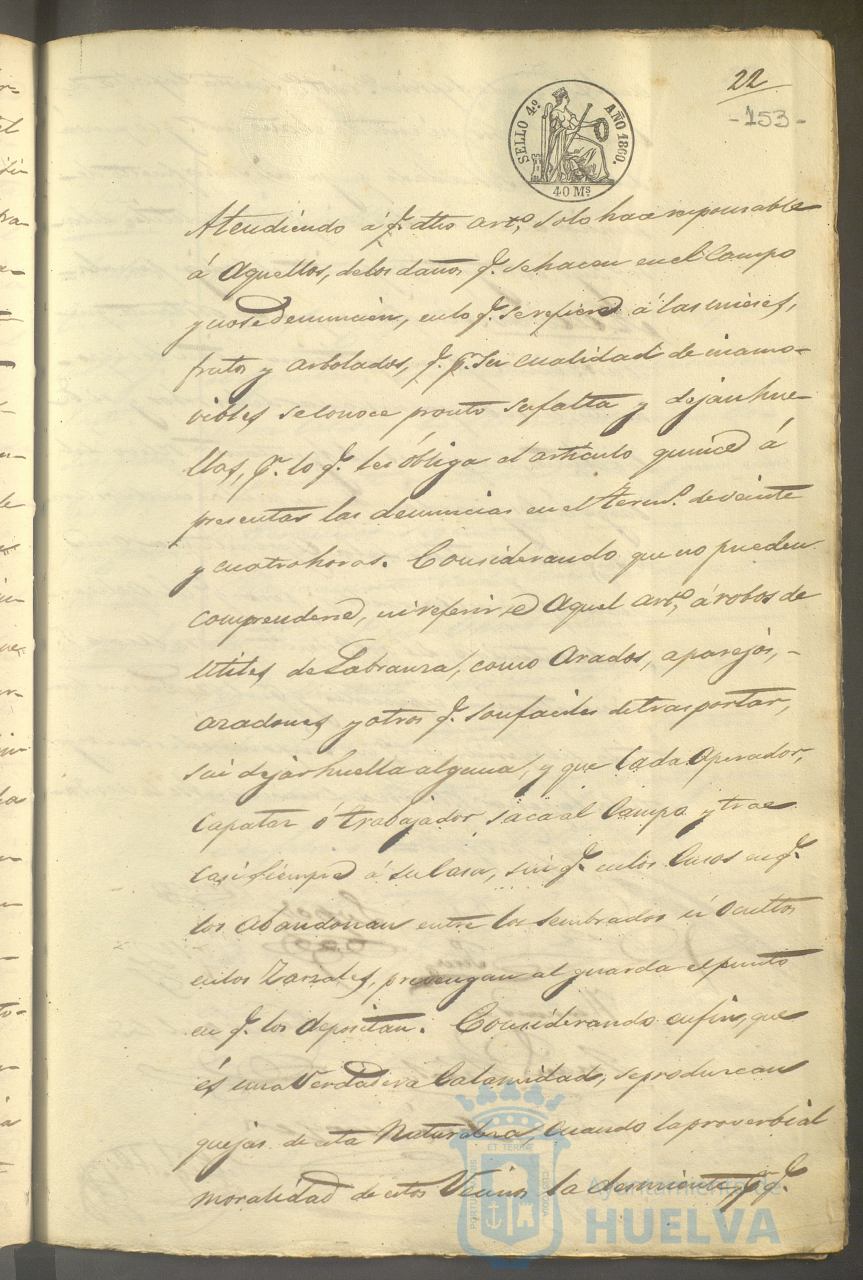 22
-153-
SELLO 4º AÑO 1860.
40 Ms
Atendiendo á q. dho artº, solo hace responsable
á Aquellos, delos daños q. se hacen en el Campo
y no se denuncien, en lo q. se refiere á las mieses,
frutos y arbolados, q. p. su cualidad de inamo-
vibles se conoce pronto su falta y dejan hue-
llas, pr. lo q. les óbliga el artículo quince á
presentar las denuncias en el termº. de veinte
y cuatro horas. Considerando que no pueden
comprenderse, ni referirse Aquel artº, á robos de
útiles de Labranza, como Arados, aparejos, -
azadones y otros q. son faciles de trasportar,
sin dejar huella alguna, y que Cada Aperador,
Capataz ó trabajador, saca al Campo y trae
Casi siempre á su Casa, sin q. en los Casos en q.
los Abandonan entre los sembrados ú Ocultos
en los Zarzales, prevengan al guarda el punto
en q. los depositan. Considerando en fin, que
és una Verdadera Calamidad, se produzcan
quejas de esta Naturaleza, Cuando la proverbial
moralidad de estos Vecinos la desmiente, pr q.
Ayuntamiento de
HUELVA